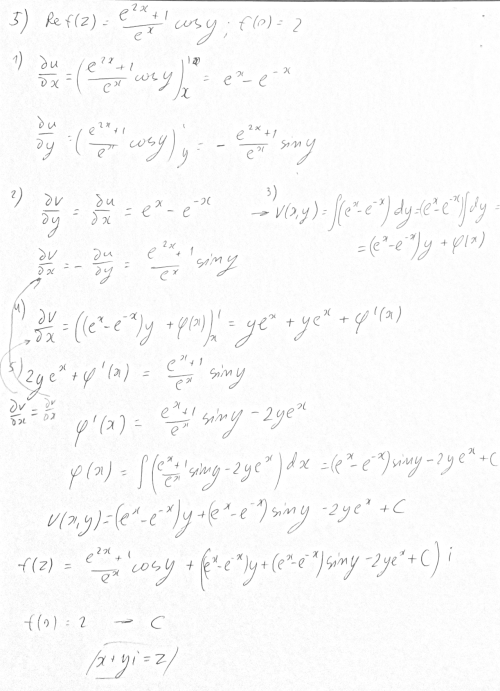 5) Re f(z) = (e^{2x}+1)/e^x cos y ; f(0) = 2
1) ∂u/∂x = ((e^{2x}+1)/e^x cos y)'_x = e^x - e^{-x}
∂u/∂y = ((e^{2x}+1)/e^x cos y)'_y = - (e^{2x}+1)/e^x sin y
2) ∂v/∂y = ∂u/∂x = e^x - e^{-x}
3) → v(x,y) = ∫(e^x - e^{-x}) dy = (e^x - e^{-x}) ∫dy =
= (e^x - e^{-x})y + φ(x)
∂v/∂x = - ∂u/∂y = (e^{2x}+1)/e^x sin y
4) ∂v/∂x = ((e^x - e^{-x})y + φ(x))'_x = ye^x + ye^x + φ'(x)
5) 2ye^x + φ'(x) = (e^x+1)/e^x sin y
∂v/∂x = ∂v/∂x
φ'(x) = (e^x+1)/e^x sin y - 2ye^x
φ(x) = ∫((e^x+1)/e^x sin y - 2ye^x) dx = (e^x - e^{-x}) sin y - 2ye^x + C
v(x,y) = (e^x - e^{-x})y + (e^x - e^{-x}) sin y - 2ye^x + C
f(z) = (e^{2x}+1)/e^x cos y + ((e^x - e^{-x})y + (e^x - e^{-x}) sin y - 2ye^x + C) i
f(0) = 2 — C
/x+yi = z/